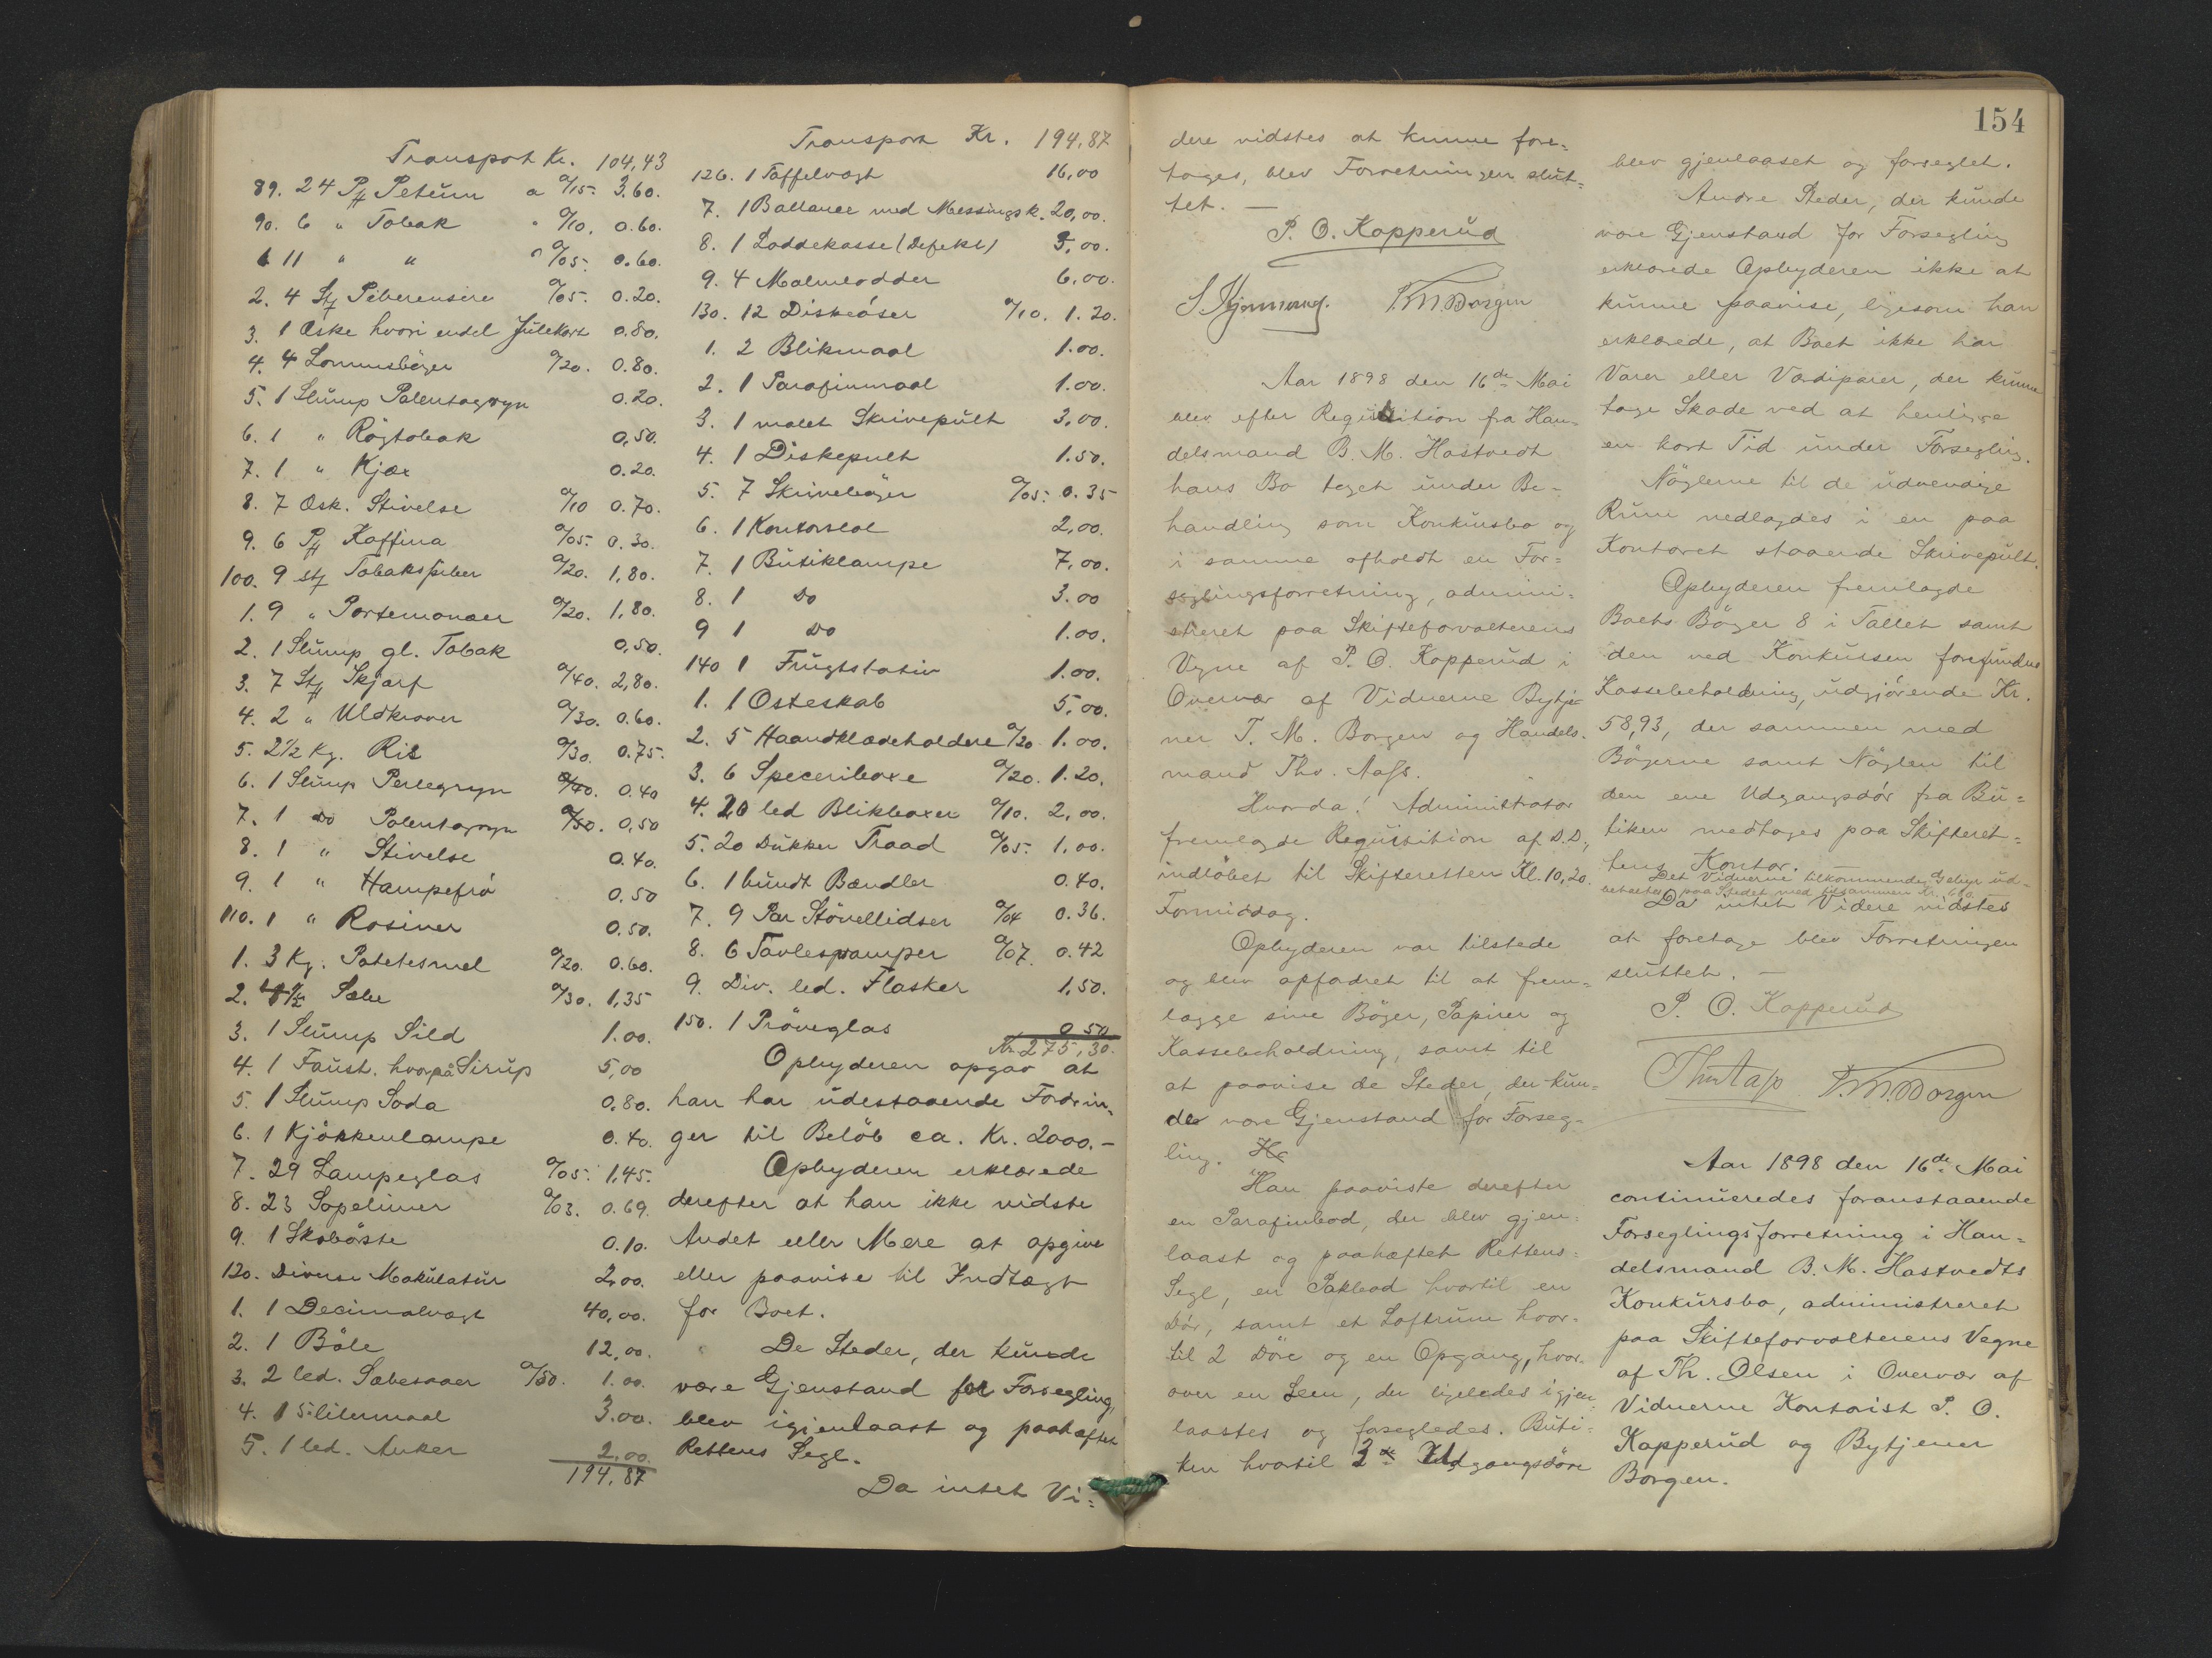 Transport Kr. 104,43
89. 24 Pk Petum a a/15. 3.60.
90. 6 " Tobak " a/10. 0.60.
1 11 " " " a/05. 0.60.
2. 4 St Piberensere a/05. 0.20.
3. 1 Æske hvori endel Julekort 0.80.
4. 4 Lommebøger a/20. 0.80.
5. 1 Slump Palentagryn 0.20.
6. 1 " Røgtobak 0,50.
7. 1 " Kjæx 0.20.
8. 7 Æsk. Stivelse a/10 0.70.
9. 6 Pk Kaffina a/05. 0.30.
100. 9 stk Tobakspiber a/20. 1,80.
1. 9 " Portemonæer a/20. 1,80.
2. 1 Slump gl. Tobak 0,50.
3. 7 Stk Skjærf a/40. 2,80.
4. 2 " Uldkraver a/30. 0.60.
5. 2½ Kg. Ris a/30. 0.75.
6. 1 Slump Perlegryn a/40. 0.40
7. 1 Do Palentagryn a/50. 0,50
8. 1 " Stivelse 0.40.
9. 1 " Hampefrö 0.50
110. 1 " Rosiner 0.50.
1. 3 Kg. Potetesmel a/20. 0.60.
2. 4½ Sæbe a/30. 1,35
3. 1 Slump Sild 1.00.
4. 1 Faust. hvorpå Sirup 5,00
5. 1 Slump Soda 0.80.
6. 1 Kjökkenlampe 0.40.
7. 29 Lampeglas a/05. 1,45.
8. 23 Sopelimer a/03. 0.69.
9. 1 Skobörste 0.10.
120. Diverse Makulatur 2,00.
1. 1 Decimalvægt 40,00.
2. 1 Böle 12,00.
3. 2 led. Sæbesaaer a/50. 1.00.
4. 1 5-litermaal 3.00.
5. 1 led. Anker 2,00.
194,87
Transport Kr. 194,87
126. 1 Taffelvægt 16,00
7. 1 Ballance med Messingsk. 20,00.
8. 1 Loddekasse (Defekt) 3,00.
9. 4 Malmlodder 6,00.
130. 12 Diskdåser a/10. 1.20.
1. 2 Blikmaal 1.00.
2. 1 Parafinmaal 1.00.
3. 1 malet Skrivepult 3,00.
4. 1 Diskepult 1.50.
5. 7 Skrivebøger a/05. 0.35
6. 1 Kontorstol 2,00.
7. 1 Butiklampe 7,00.
8. 1 Do 3.00
9 1 Do 1.00.
140 1 Frugtstativ 1.00.
1. 1 Osteskab 5,00.
2. 5 Haandklædeholdere a/20 1.00.
3. 6 Speceriboxe a/20. 1.20.
4. 20 led Blikboxer a/10. 2,00.
5. 20 Dukker Traad a/05. 1,00.
6. 1 bundt Bændler 0.40.
7. 9 Par Stövellidser a/04 0.36.
8. 6 Tavlesvamper a/07. 0.42
9. Div. led. Flasker 1,50.
150. 1 Pröveglas 0.50
Kr. 275,30.
Opbyderen opgav at
han har udestaaende Fordrin-
ger til Belöb ca. Kr. 2000.-
Opbyderen erklærede
derefter at han ikke vidste
Andet eller Mere at opgive
eller paavise til Indtægt
for Boet.
De Steder, der kunde
være Gjenstand for Forsegling,
blev igjenlaast og paahæftet
Rettens Segl.
Da intet Vi-
154
dere vidstes at kunne fore-
tages, blev Forretningen slut-
tet. —
P. O. Kopperud
T. M. Borgen
Aar 1898 den 16de Mai
blev efter Requisition fra Han-
delsmand B. M. Hastvedt
hans Bo taget under Be-
handling som Konkursbo og
i samme afholdt en For-
seglingsforretning, admini-
streret paa Skifteforvalterens
Vegne af P. O. Kopperud i
Overvær af Vidnerne Bytje-
ner T. M. Borgen og Handels-
mand Thv. Aass.
Hvorda! Administrator
fremlagde Requisition af D.D.,
indlöbet til Skifteretten Kl. 10,20
Formiddag.
Opbyderen var tilstede
og blev opfordret til at frem-
lægge sine Böger, Papirer og
Kassebeholdning, samt til
at paavise de Steder, der kun-
de være Gjenstand for Forseg-
ling. He
Han paaviste derefter
en Parafinbod, der blev gjen-
laast og paahæftet Rettens
Segl, en Pakbod hvortil en
Dör, samt et Loftrum hvor-
til 2 Döre og en Opgang, hvor-
over en Lem, der ligeledes igjen-
laastes og forsegledes. Buti-
ken hvortil 3de Udgangsdöre
blev gjenlaaset og forseglet.
Andre Steder, der kunde
være Gjenstand for Forsegling
erklærede Opbyderen ikke at
kunne paavise, ligesom han
erklærede, at Boet ikke har
Varer eller Værdiparer, der kunne
tage Skade ved at henligge
en kort Tid under Forsegling.
Nöglerne til de udvendige
Rum nedlagdes i en paa
Kontoret staaende Skrivepult.
Opbyderen fremlagde
Boets Böger 8 i Tallet samt
den ved Konkursen forefundne
Kassebeholdning, udgjörende Kr.
58,93, der sammen med
Bögerne samt Nöglen til
den ene Udgangsdör fra Bu-
tiken medtages paa Skifteret-
tens Kontor.
Det Vidnerne tilkommende Gebyr ud-
betaltes paa Stedet med tilsammen Kr.
Da intet Videre vidstes
at foretage blev Forretningen
sluttet. —
P. O. Kopperud
Thv Aass T. M. Borgen
Aar 1898 den 16de Mai
continueredes foranstaaende
Forseglingsforretning i Han-
delsmand B. M. Hastvedts
Konkursbo, administreret
paa Skifteforvalterens Vegne
af Th. Olsen i Overvær af
Vidnerne Kontorist P. O.
Kopperud og Bytjener
Borgen.